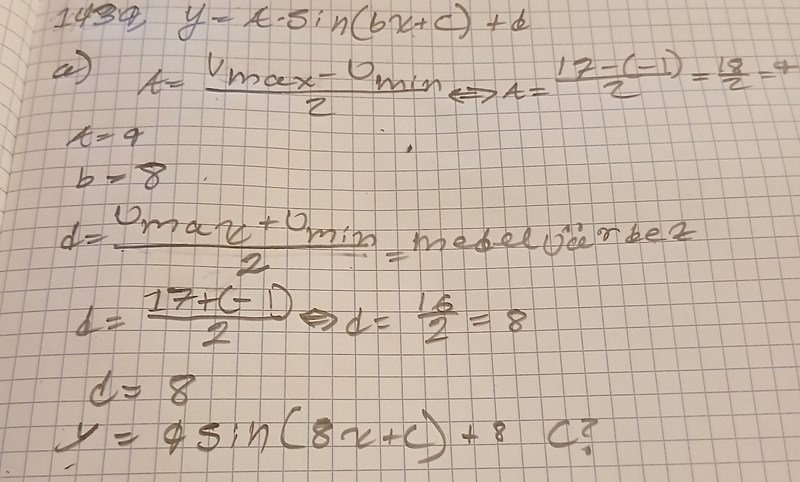 1439, y = A·sin(bx+c) + d
a) A = Vmax - Vmin / 2 ⇔ A = 17-(-1) / 2 = 18/2 = 9
A = 9
b = 8
d = Vmax + Vmin / 2 = medelvärdet
d = 17+(-1) / 2 ⇔ d = 16/2 = 8
d = 8
y = 9 sin(8x+c) + 8 C?